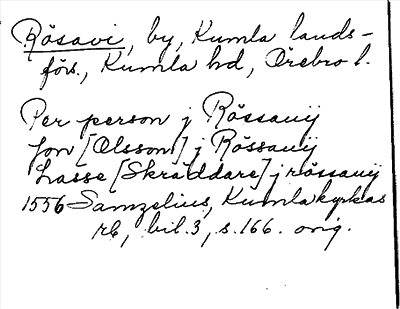 Rösavi, by, Kumla lands-
förs., Kumla hd, Örebro l.
Per person j Rössauij
Jon [Olsson] j Rössauij
Lasse [Skräddare] j rössauij
1556 Samzelius, Kumla kyrkas
rb, bil. 3, s. 166. orig.